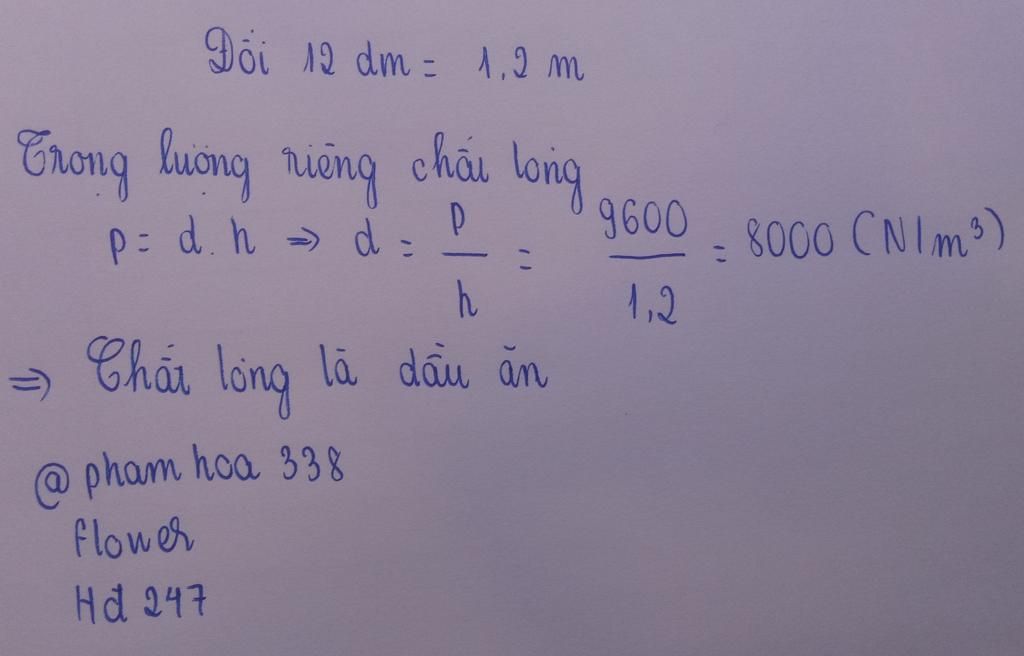 Đổi 12 dm = 1,2 m
Trọng lượng riêng chất lỏng
p = d.h => d = p/h = 9600/1,2 = 8000 (N/m³)
=> Chất lỏng là dầu ăn
@ pham hoa 338
flower
Hđ 247